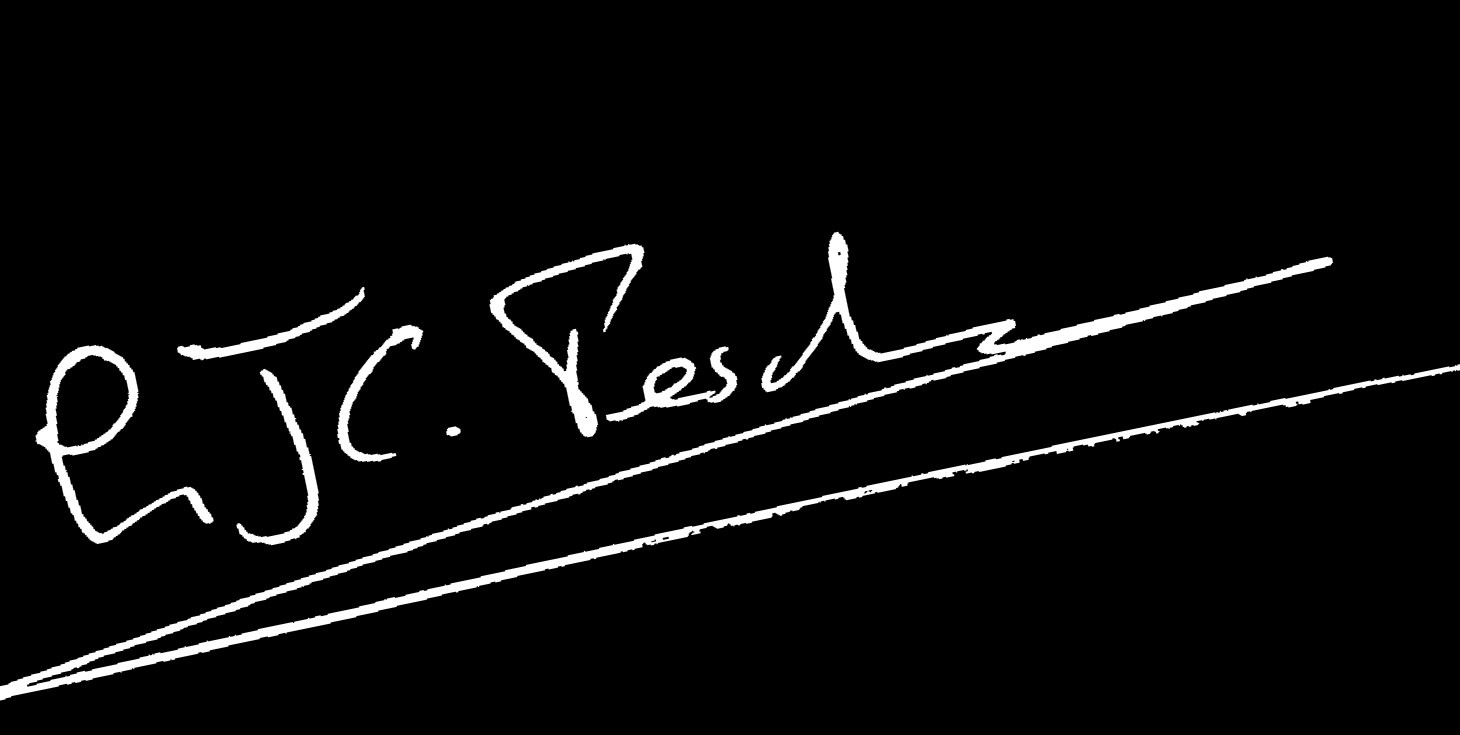 P J C. Pesch